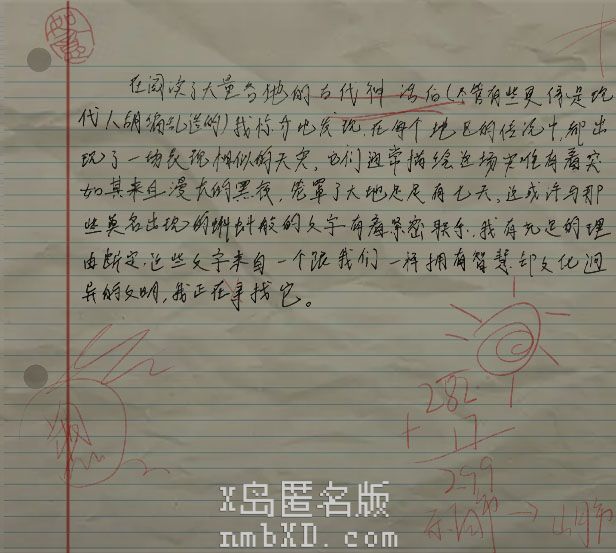 在阅读了大量当地的古代神话后(尽管有些更像是现
代人胡编乱造的)我惊奇地发现,在每个地区的传说中,都出
现了一场表现相似的天灾,它们通常描绘这场灾难有着突
如其来且漫长的黑夜,笼罩了大地足足有七天,这或许与那
些莫名出现的蝌蚪般的文字有着紧密联系,我有充足的理
由断定,这些文字来自一个跟我们一样拥有智慧却文化迥
异的文明,我正在寻找它。
282
+ 17
299
X岛匿名版
nmbXD.com